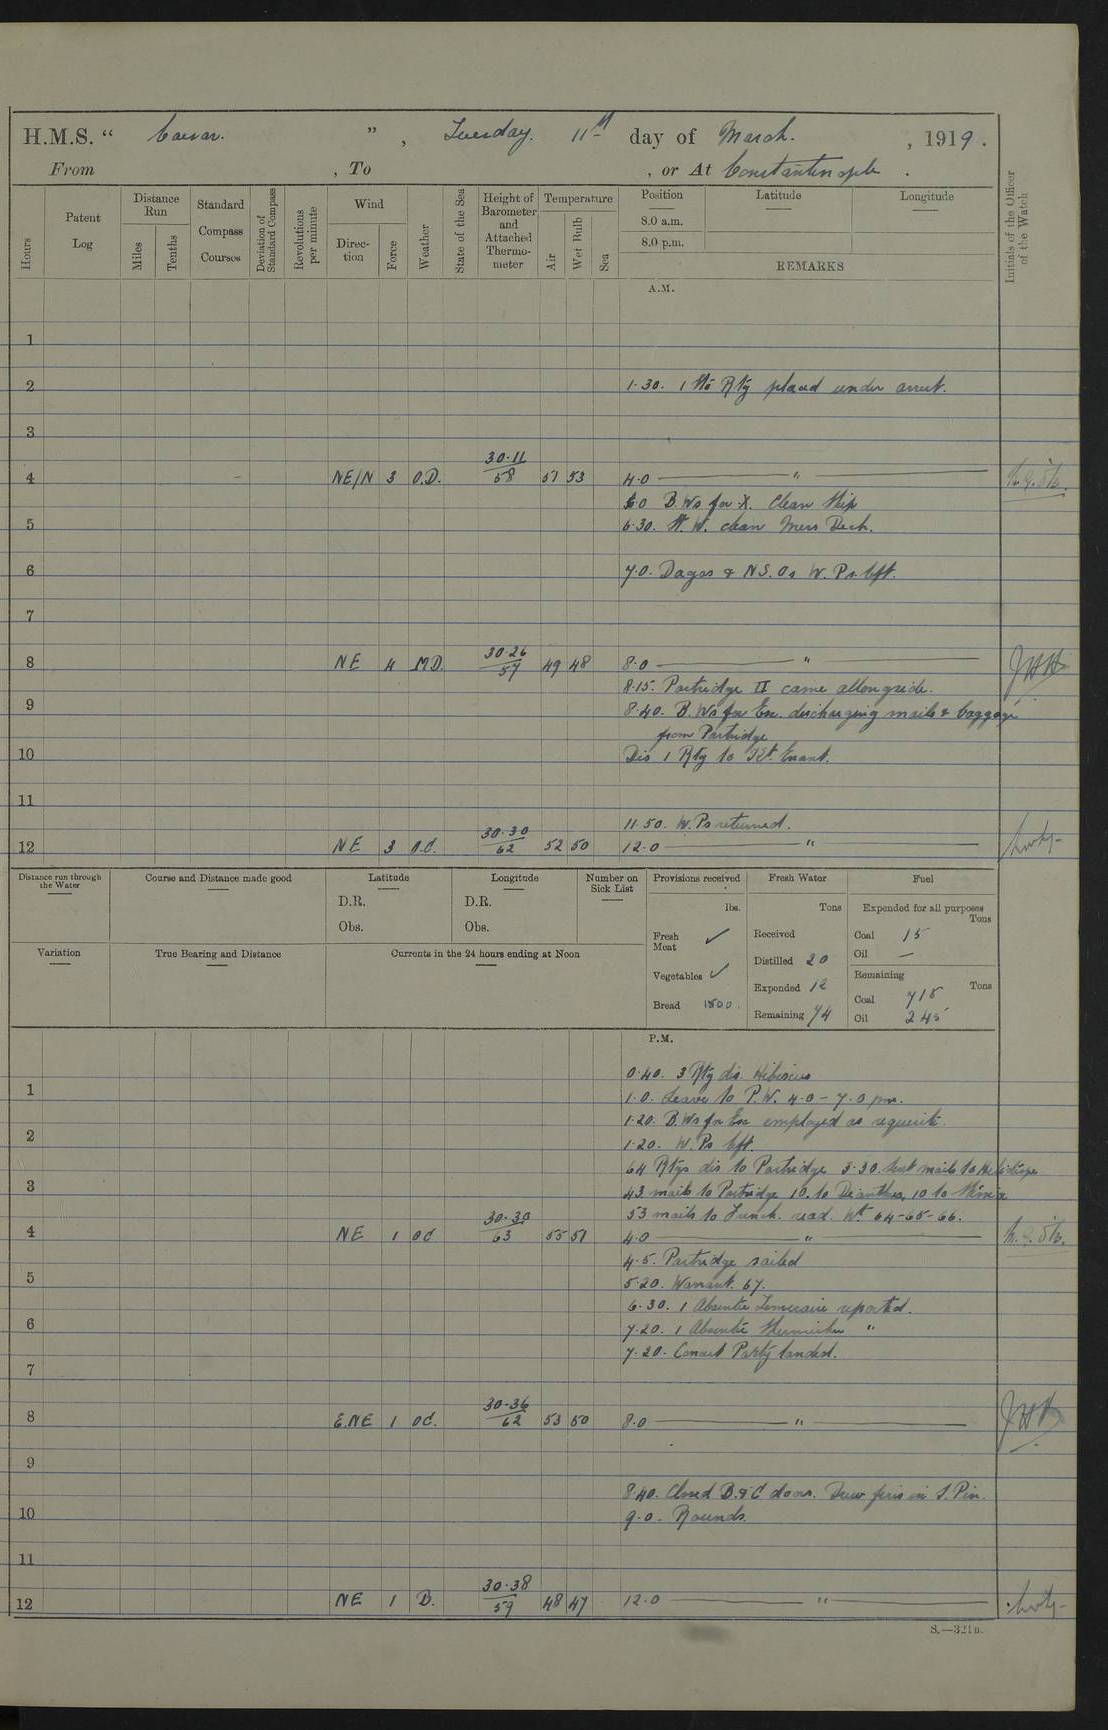 H.M.S. " Caesar. ", Tuesday. 11th day of March. , 1919.
From , To , or At Constantinople .
Hours
Patent Log
Distance Run
Miles
Tenths
Standard Compass Courses
Deviation of Standard Compass
Revolutions per minute
Wind
Direc-tion
Force
Weather
State of the Sea
Height of Barometer and Attached Thermo-meter
Temperature
Air
Wet Bulb
Sea
Position
Latitude
Longitude
8.0 a.m.
8.0 p.m.
REMARKS
Initials of the Officer of the Watch
A.M.
1
2 1.30. 1 Rtg placed under arrest.
3
4 NE/N 3 O.D. 30.11 58 51 53 4.0 "
6.0 B.Ws for X. Clean Ship
5 6.30. H. W. clean Mess Deck.
6 7.0. Dagos & N.S.Os W. Ps left.
7
8 NE 4 MD. 30.26 57 49 48 8.0 " JHH
8.15. Partridge II came alongside.
9 8.40. B.Ws for Ex. discharging mails & baggage
from Partridge
10 Dis 1 Rtg to
11
11.50. W.Ps returned.
12 NE 3 O.C. 30.30 62 52 50 12.0 "
Distance run through the Water
Course and Distance made good
Latitude
D.R.
Obs.
Longitude
D.R.
Obs.
Number on Sick List
Provisions received
lbs.
Fresh Meat ✓
Vegetables ✓
Bread 1500.
Fresh Water
Tons
Received
Distilled 20
Expended 12
Remaining 74
Fuel
Expended for all purposes
Tons
Coal 15
Oil —
Remaining
Tons
Coal 715
Oil 245
Variation
True Bearing and Distance
Currents in the 24 hours ending at Noon
P.M.
0.40. 3 Rtg dis. Hibiscus
1 1.0. Leave to P.W. 4.0 - 7.0 pm.
1.20. B.Ws for Ex employed as requisite.
2 1.20. W.Ps left.
64 Rtgs dis to Partridge 3.30. sent mails to
3 43 mails to Partridge 10. to Dianthus, 10 to
53 mails to read. Wt 64-65-66.
4 NE 1 OC 30.30 63 55 51 4.0 "
4.5. Partridge sailed
5 5.20. Warrant. 67.
6.30. 1 Absentee Temeraire reported.
6 7.20. 1 Absentee "
7.20. Concert Party landed.
7
8 E.NE 1 OC. 30.36 62 53 50 8.0 " JHH
9
8.40. Closed B.&C doors. Drew fires in S. Pin.
10 9.0. Rounds.
11
12 NE 1 B. 30.38 59 48 47 12.0 "
S.—321 B.